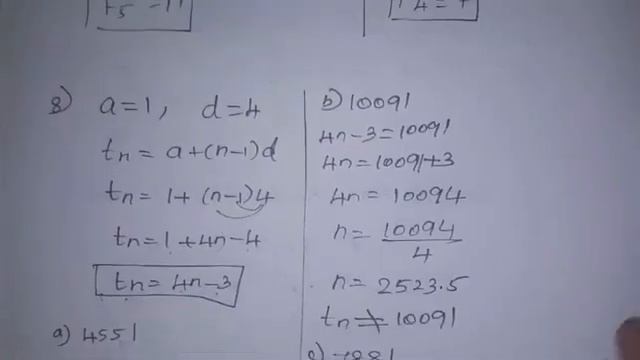 8) a=1, d=4
tn = a+(n-1)d
tn = 1+ (n-1)4
tn = 1+4n-4
tn = 4n-3
a) 4551
b) 10091
4n-3=10091
4n=10091+3
4n = 10094
n = 10094/4
n = 2523.5
tn ≠ 10091